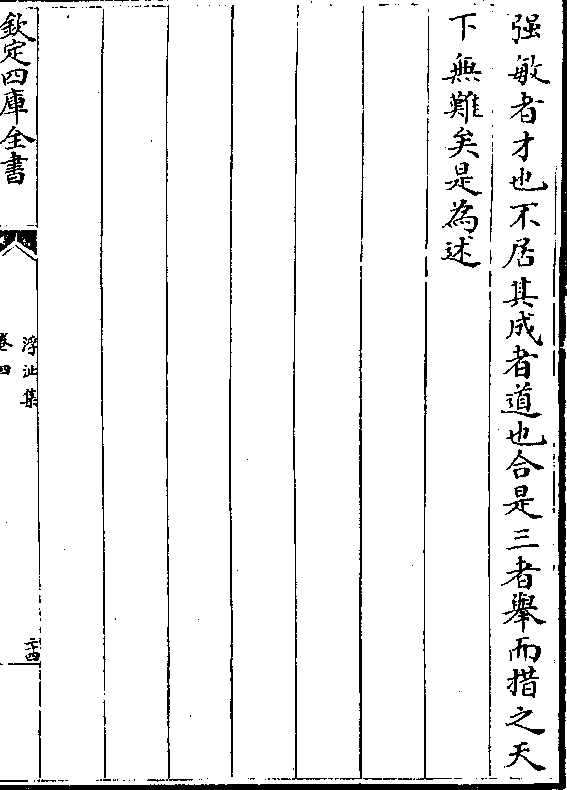 强敏者才也不居其成者道也合是三者舉而措之天
下無難矣是為述
欽定四庫全書
浮沚集
卷四
二十四